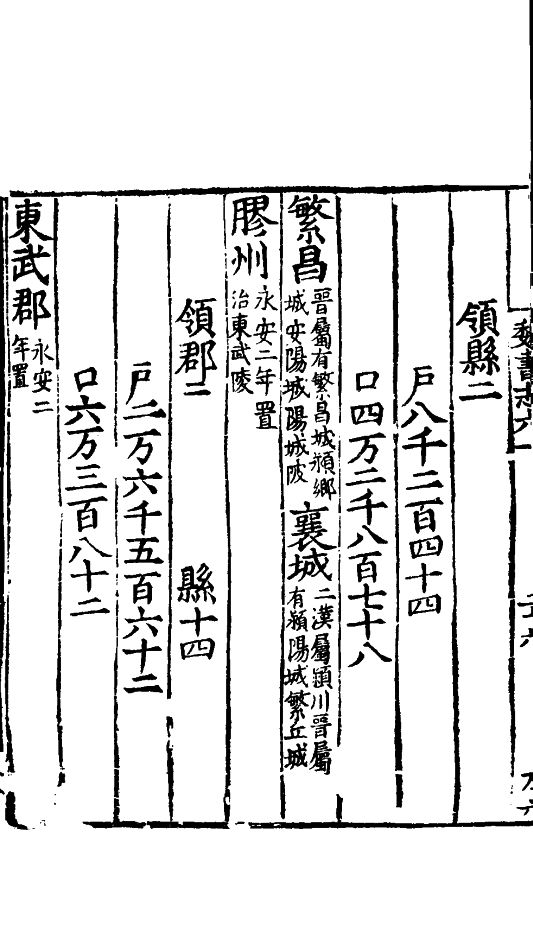 魏書志六
領縣二
戶八千二百四十四
口四万二千八百七十八
繁昌
晉屬有繁昌城潁鄉
城安陽城陽城陂
襄城
二漢屬潁川晉屬
有潁陽城繁丘城
膠州
永安二年置
治東武陵
領郡二 縣十四
戶二万六千五百六十二
口六万三百八十二
東武郡
永安二
年置